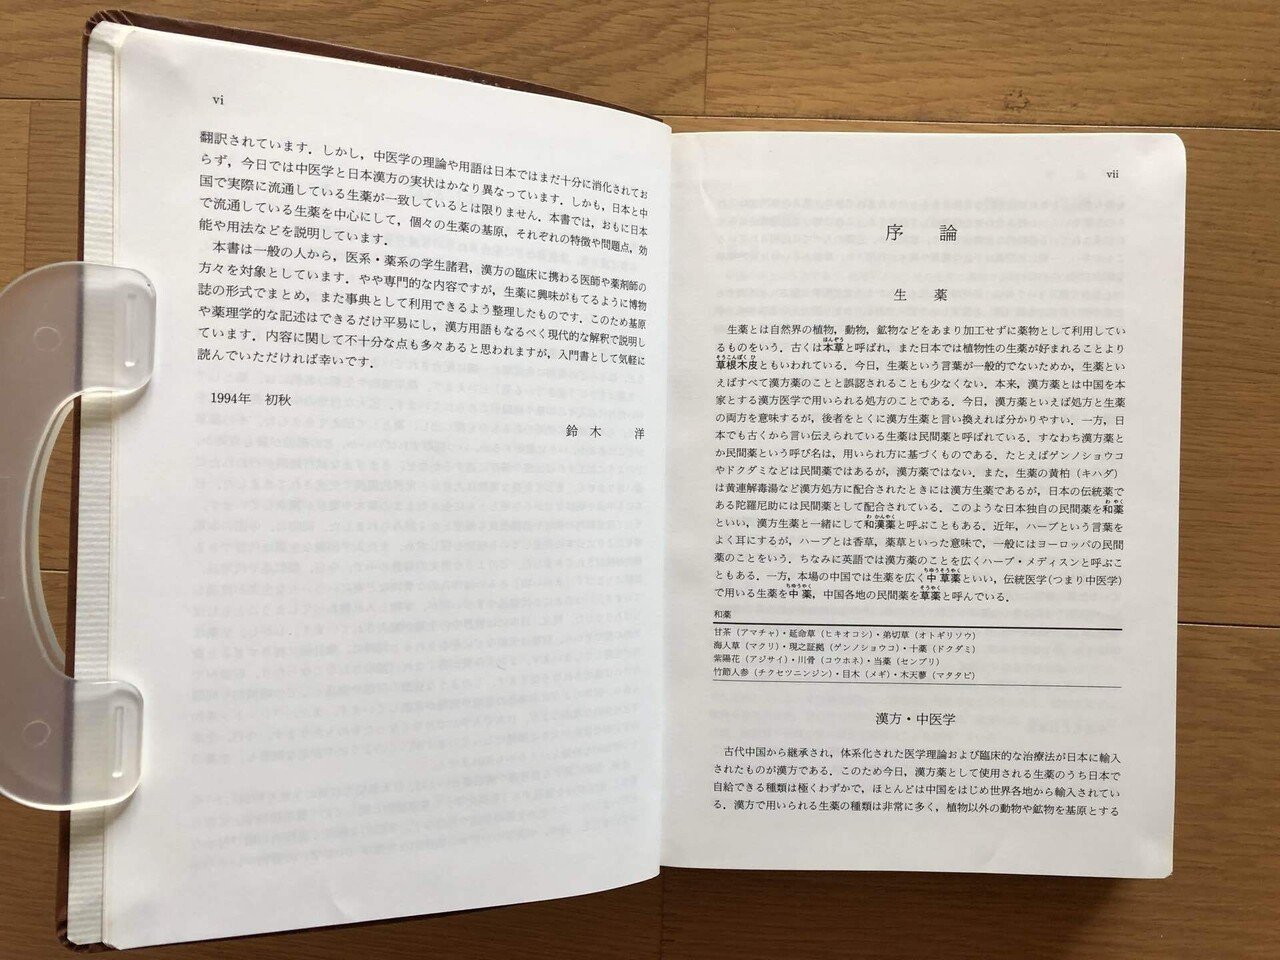 vi
翻訳されています．しかし，中医学の理論や用語は日本ではまだ十分に消化されてお
らず，今日では中医学と日本漢方の実状はかなり異なっています．しかも，日本と中
国で実際に流通している生薬が一致しているとは限りません．本書では，おもに日本
で流通している生薬を中心にして，個々の生薬の基原，それぞれの特徴や問題点，効
能や用法などを説明しています．
本書は一般の人から，医系・薬系の学生諸君，漢方の臨床に携わる医師や薬剤師の
方々を対象としています．やや専門的な内容ですが，生薬に興味がもてるように博物
誌の形式でまとめ，また事典として利用できるよう整理したものです．このため基原
や薬理学的な記述はできるだけ平易にし，漢方用語もなるべく現代的な解釈で説明し
ています．内容に関して不十分な点も多々あると思われますが，入門書として気軽に
読んでいただければ幸いです．
1994年　初秋
鈴木　洋
vii
序論
生薬
生薬とは自然界の植物，動物，鉱物などをあまり加工せずに薬物として利用してい
ほんぞう
るものをいう．古くは本草と呼ばれ，また日本では植物性の生薬が好まれることより
そうこんぼくひ
草根木皮ともいわれている．今日，生薬という言葉が一般的でないためか，生薬とい
えばすべて漢方薬のことと誤認されることも少なくない．本来，漢方薬とは中国を本
家とする漢方医学で用いられる処方のことである．今日，漢方薬といえば処方と生薬
の両方を意味するが，後者をとくに漢方生薬と言い換えれば分かりやすい．一方，日
本でも古くから言い伝えられている生薬は民間薬と呼ばれている．すなわち漢方薬と
か民間薬という呼び名は，用いられ方に基づくものである．たとえばゲンノショウコ
やドクダミなどは民間薬ではあるが，漢方薬ではない．また，生薬の黄柏（キハダ）
は黄連解毒湯など漢方処方に配合されたときには漢方生薬であるが，日本の伝統薬で
わやく
ある陀羅尼助には民間薬として配合されている．このような日本独自の民間薬を和薬
わかんやく
といい，漢方生薬と一緒にして和漢薬と呼ぶこともある．近年，ハーブという言葉を
よく耳にするが，ハーブとは香草，薬草といった意味で，一般にはヨーロッパの民間
薬のことをいう．ちなみに英語では漢方薬のことを広くハーブ・メディスンと呼ぶこ
ちゅうそうやく
ともある．一方，本場の中国では生薬を広く中草薬といい，伝統医学（つまり中医学）
ちゅうやく　そうやく
で用いる生薬を中薬，中国各地の民間薬を草薬と呼んでいる．
和薬
甘茶（アマチャ）・延命草（ヒキオコシ）・弟切草（オトギリソウ）
海人草（マクリ）・現之証拠（ゲンノショウコ）・十薬（ドクダミ）
紫陽花（アジサイ）・川骨（コウホネ）・当薬（センブリ）
竹節人参（チクセツニンジン）・目木（メギ）・木天蓼（マタタビ）
漢方・中医学
古代中国から継承され，体系化された医学理論および臨床的な治療法が日本に輸入
されたものが漢方である．このため今日，漢方薬として使用される生薬のうち日本で
自給できる種類は極くわずかで，ほとんどは中国をはじめ世界各地から輸入されてい
る．漢方で用いられる生薬の種類は非常に多く，植物以外の動物や鉱物を基原とする